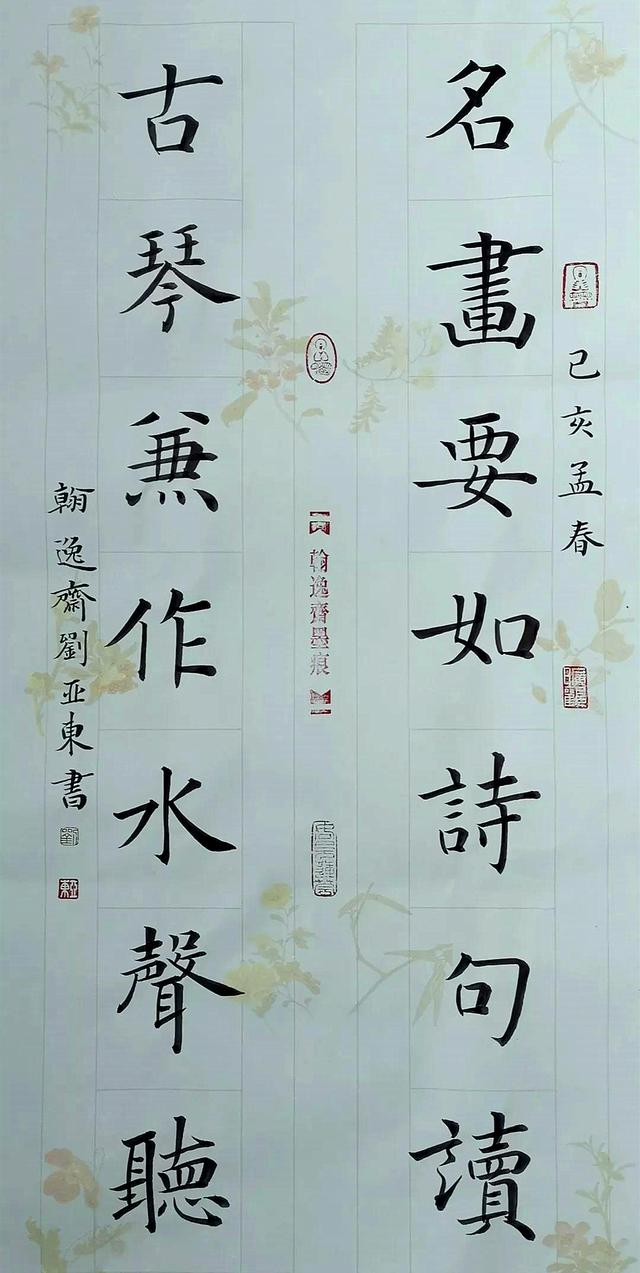 己亥孟春
名畫要如詩句讀
翰逸齊墨痕
古琴兼作水聲聽
翰逸齋劉亚東書